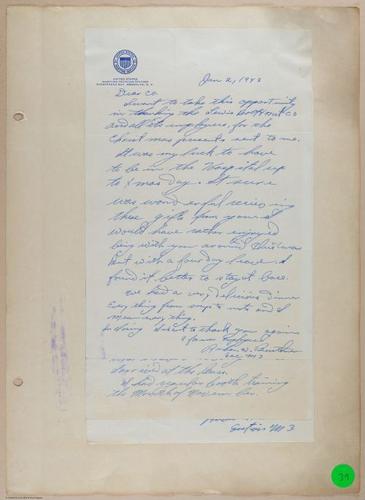 UNITED STATES
MARITIME TRAINING STATION
SHEEPSHEAD BAY, BROOKLYN, N. Y.
Jan 2, 1943
Dear Co.
I want to take this opportunity
in thanking the Lewis Bolt & Nut Co
and all its employees for the
Christmas present sent to me.
It was my luck to have
to be in the Hospital up
to Xmas Day. It sure
was wonderful receiving
these gifts from you. I
would have rather enjoyed
being with you around
but with a four day leave I
found it better to stay at base.
We had a very delicious dinner
Everything from soup to nuts and I
mean everything.
So long I want to thank you again
W.
at the
training
the Month of
M 3
39